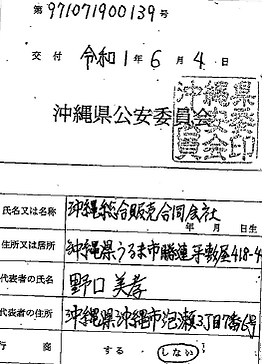 第971071900139号
交付 令和1年6月4日
沖縄県公安委員会
沖縄県
公安委
員会印
氏名又は名称 沖縄総合販売合同会社
年 月 日生
住所又は居所 沖縄県うるま市勝連平敷屋418-4
代表者の氏名 野口 美孝
代表者の住所 沖縄県沖縄市泡瀬3丁目7番6号
行商 する しない